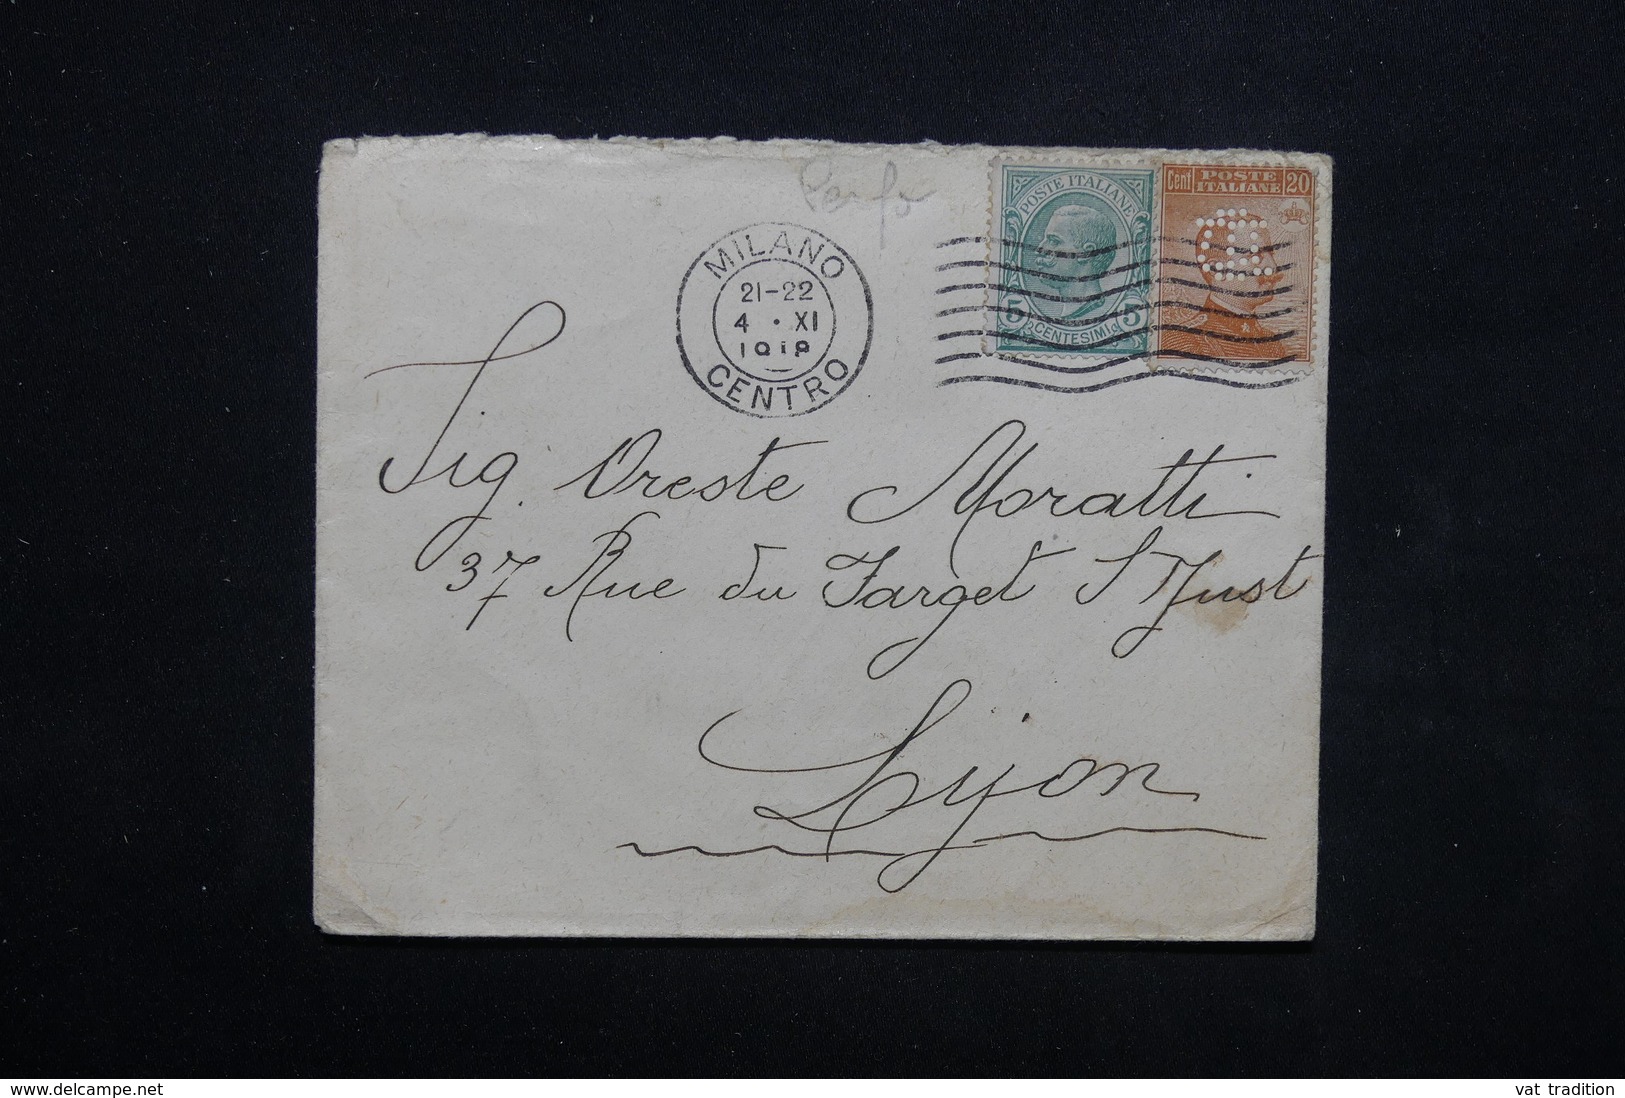 Perfo
MILANO
21-22
4 · XI
1918
CENTRO
POSTE ITALIANE
5 CENTESIMI 5
Cent POSTE ITALIANE 20
Sig. Oreste Moratti
37 Rue du Farget St Just
Lyon
delcampe.net
vat_tradition